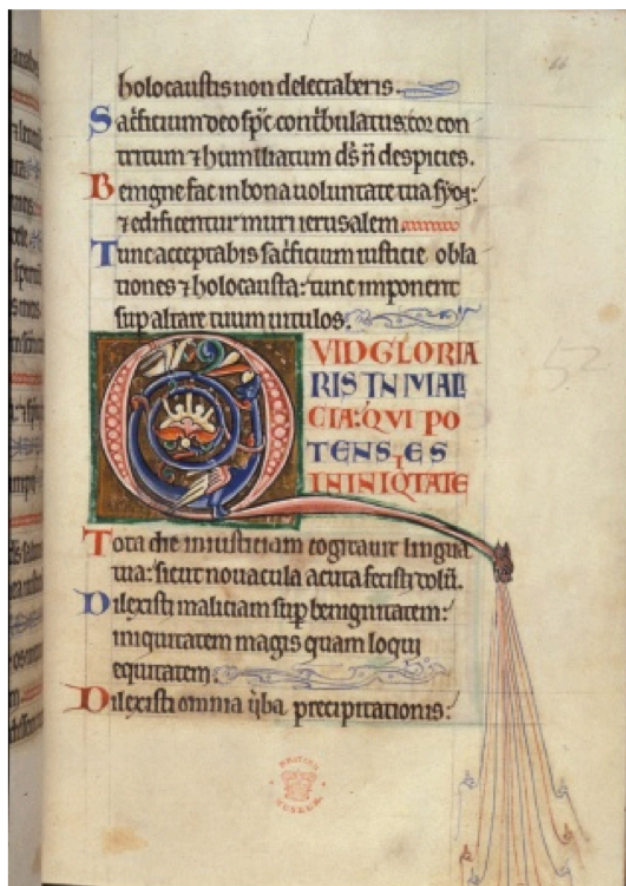 holocaustis non delectaberis.
Sac̄ficium deo sp̄c cont̄bulatus: cor con
tritum ⁊ humiliatum d̄s n̄ despicies.
Benigne fac in bona uoluntate tua syon:
⁊ edificentur muri ierusalem.
Tunc acceptabis sac̄ficium iusticie obla
tiones ⁊ holocausta: tunc imponent
sup altare tuum uitulos.
QVID GLORIA
RIS IN MALI
CIA: QVI PO
TENS ES
IN INIQͥTATE
Tota die iniusticiam cogitauit lingua
tua: sicut nouacula acuta fecisti dolū.
Dilexisti maliciam sup benignitatem:
iniquitatem magis quam loqui
equitatem.
Dilexisti omnia ūba precipitationis:
52
BRITISH MUSEUM